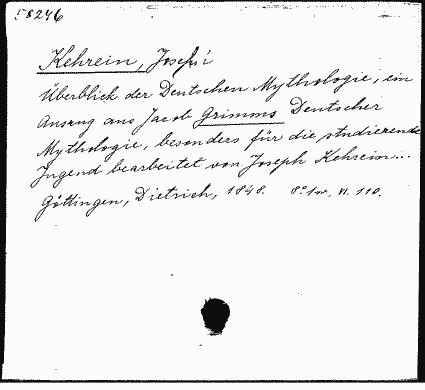 58246
Kehrein, Joseph
Überblick der Deutschen Mythologie, ein
Auszug aus Jacob Grimms Deutscher
Mythologie, besonders für die studierende
Jugend bearbeitet von Joseph Kehrein...
Göttingen, Dietrich, 1848. 8° VI. 110.